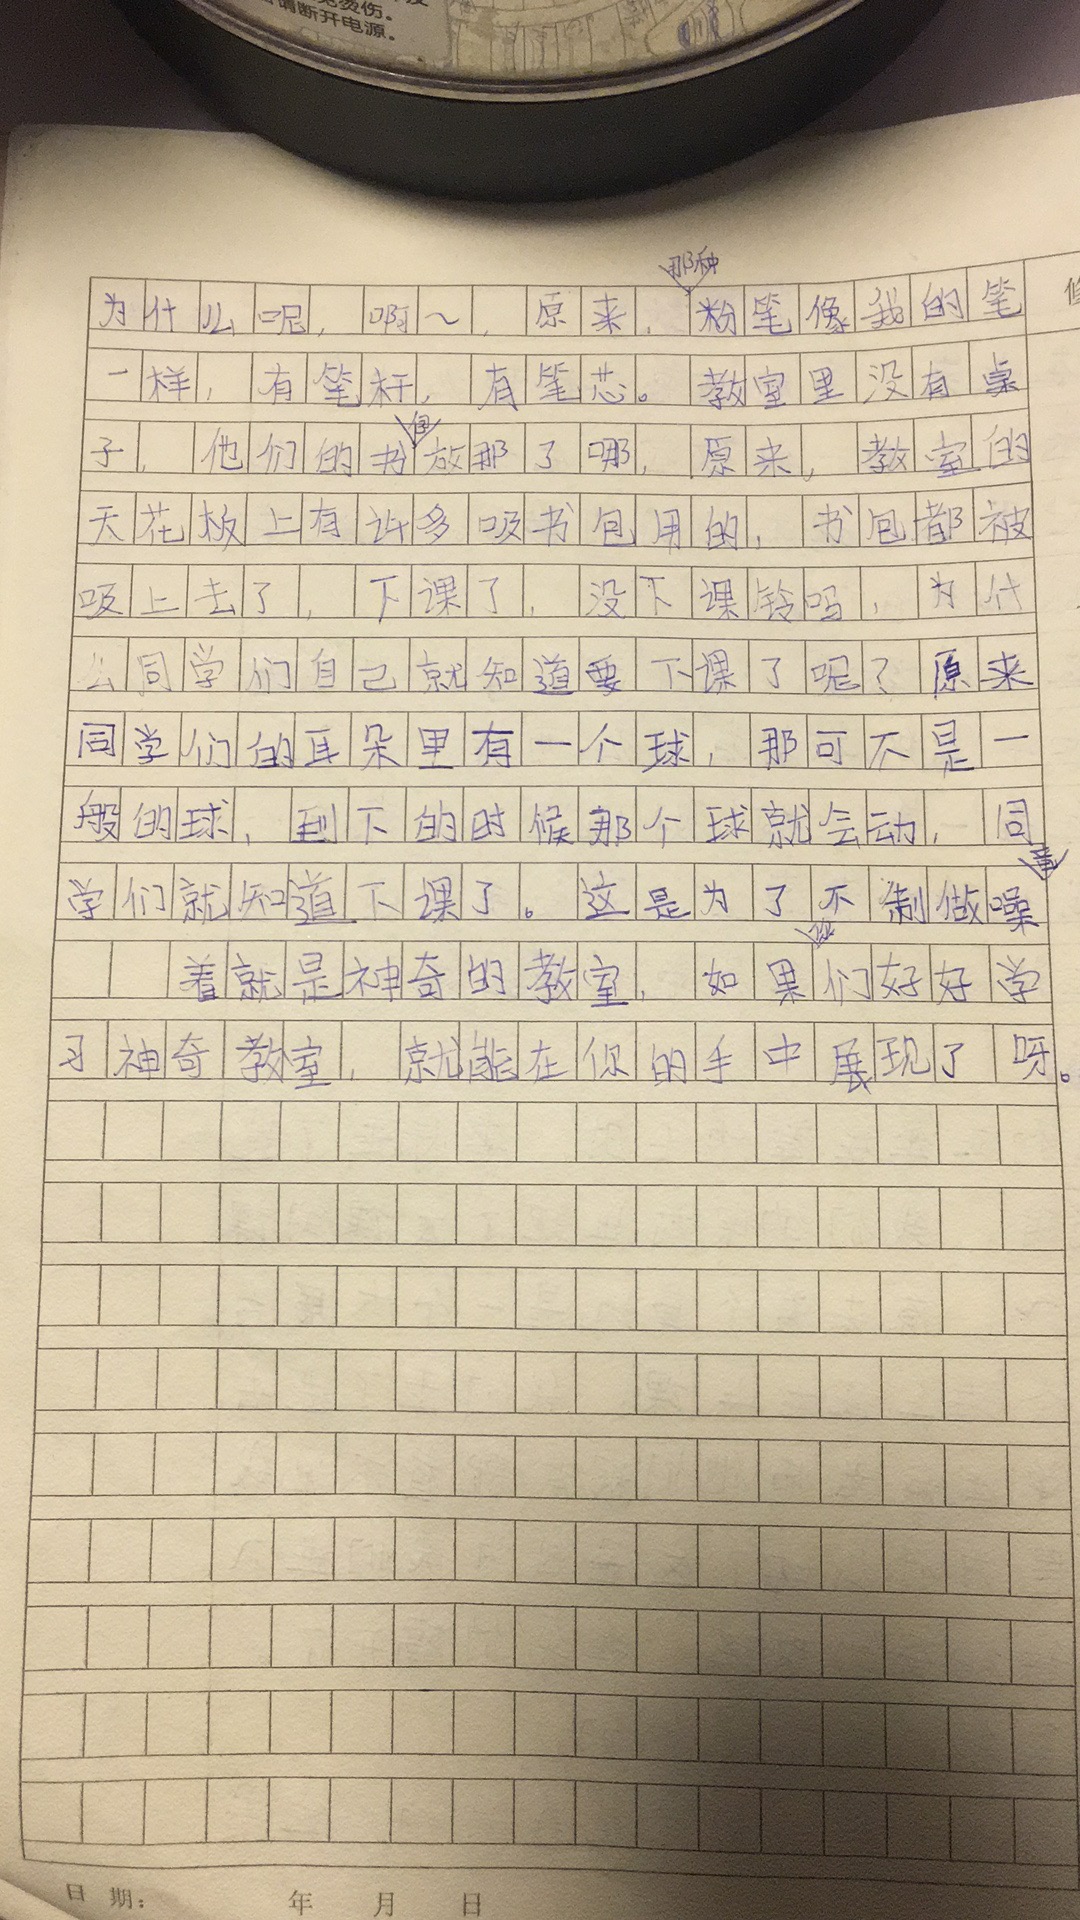 免烫伤。
请断开电源。
那种
为什么呢,啊~,原来,粉笔像我的笔
一样,有笔杆,有笔芯。教室里没有桌
包
子,他们的书放那了哪,原来,教室的
天花板上有许多吸书包用的,书包都被
吸上去了,下课了,没下课铃吗,为什
么同学们自己就知道要下课了呢?原来
同学们的耳朵里有一个球,那可不是一
般的球,到下的时候那个球就会动,同
学们就知道下课了。这是为了不制做噪
音
你
着就是神奇的教室,如果们好好学
习神奇教室,就能在你的手中展现了呀。
日期: 年 月 日